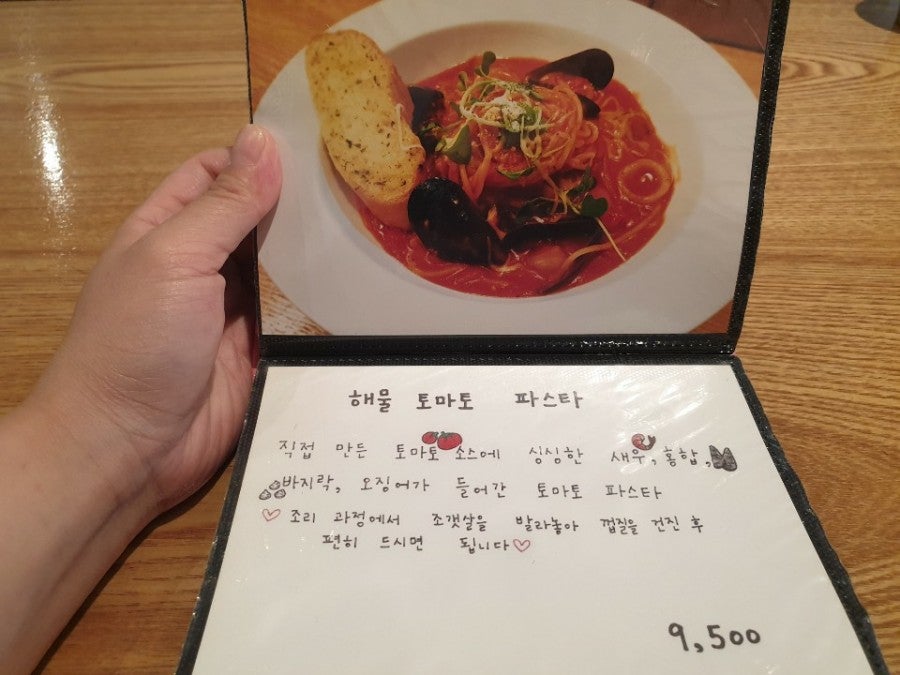 해물 토마토 파스타
직접 만든 토마토 소스에 싱싱한 새우, 홍합,
바지락, 오징어가 들어간 토마토 파스타
조리 과정에서 조갯살을 발라놓아 껍질을 건진 후
편히 드시면 됩니다
9,500